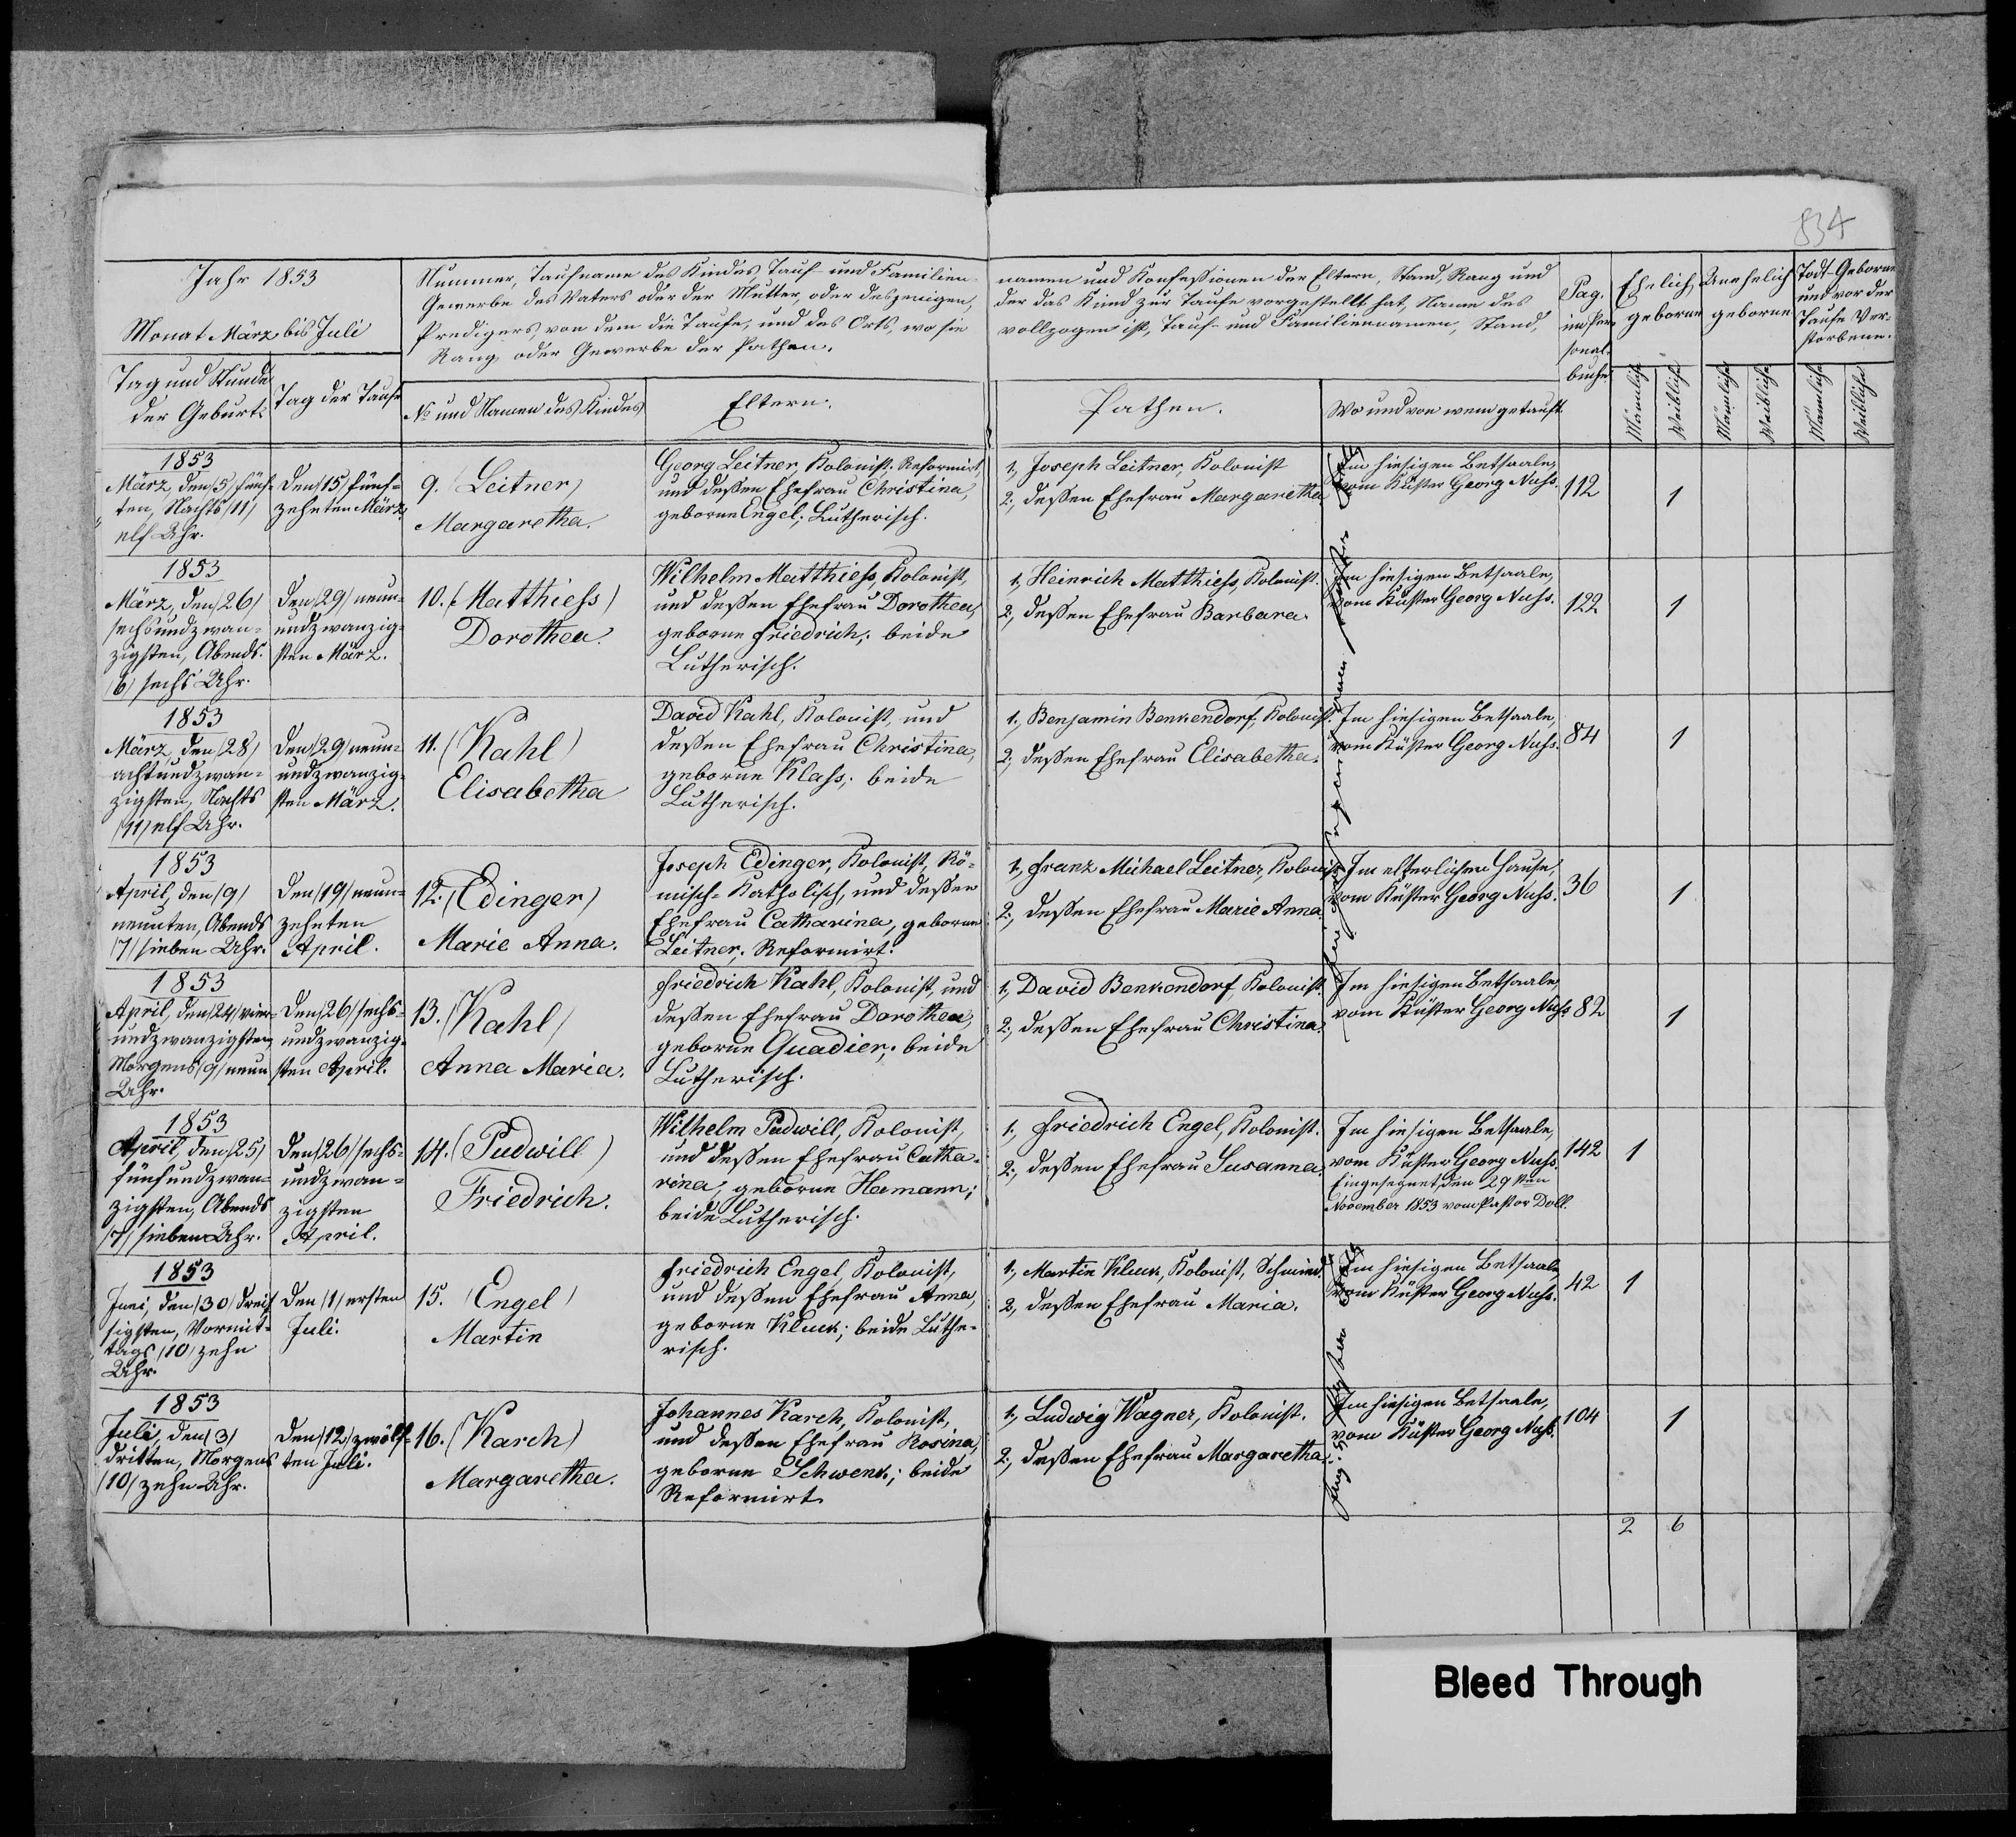 834
Jahr 1853
Monat März bis Juli
Nummer, Taufname des Kindes, Tauf- und Familien-
Gewerbe des Vaters oder der Mutter, oder desjenigen,
Predigers von dem die Taufe, und des Orts, wo sie
Rang oder Gewerbe der Pathen.
namen und Konfessionen der Eltern, Stand, Rang und
der das Kind zur Taufe vorgestellt hat, Name des
vollzogen ist, Tauf- und Familiennamen, Stand,
Pag.
im Per-
sonal-
buche
Ehelich
geborne
Unehelich
geborne
Todt-Geborne
und vor der
Taufe Ver-
storbene.
Tag und Stunde
der Geburt.
Tag der Taufe
No und Namen des Kindes
Eltern.
Pathen.
Wo und von wem getauft.
Männliche
Weibliche
Männliche
Weibliche
Männliche
Weibliche
1853
März, den /5/ fünf-
ten, Nachts /11/
elf Uhr.
Den /15/ fünf-
zehnten März.
9. /Leitner/
Margaretha.
Georg Leitner, Kolonist, Reformirt,
und deßen Ehefrau Christina,
geborne Engel; Lutherisch.
1, Joseph Leitner, Kolonist
2, deßen Ehefrau Margaretha
Im hiesigen Betsaale,
vom Küster Georg Nuss.
112
1
1853
März, den /26/
sechsundzwan-
zigsten, Abends
/6/ sechs Uhr.
Den /29/ neun-
undzwanzig-
sten März.
10. /Matthiess/
Dorothea.
Wilhelm Matthiess, Kolonist,
und deßen Ehefrau Dorothea,
geborne Friedrich; beide
Lutherisch.
1, Heinrich Matthiess, Kolonist.
2, deßen Ehefrau Barbara.
Im hiesigen Betsaale,
vom Küster Georg Nuss.
122
1
1853
März, den /28/
achtundzwan-
zigsten, Nachts
/11/ elf Uhr.
Den /29/ neun-
undzwanzig-
sten März.
11. /Kahl/
Elisabetha
David Kahl, Kolonist, und
deßen Ehefrau Christina,
geborne Klass; beide
Lutherisch.
1, Benjamin Benkendorf, Kolonist.
2, deßen Ehefrau Elisabetha.
Im hiesigen Betsaale,
vom Küster Georg Nuss.
84
1
1853
April, den /9/
neunten, Abends
/7/ sieben Uhr.
Den /19/ neun-
zehnten
April.
12. /Edinger/
Marie Anna.
Joseph Edinger, Kolonist, Rö-
misch-Katholisch, und deßen
Ehefrau Catharina, geborne
Leitner; Reformirt.
1, Franz Michael Leitner, Kolonist
2, deßen Ehefrau Marie Anna.
Im elterlichen Hause,
vom Küster Georg Nuss.
36
1
1853
April, den /24/ vier-
undzwanzigsten
Morgens /9/ neun
Uhr.
Den /26/ sechs-
undzwanzig-
sten April.
13. /Kahl/
Anna Maria.
Friedrich Kahl, Kolonist, und
deßen Ehefrau Dorothea,
geborne Quadier; beide
Lutherisch.
1, David Benkendorf, Kolonist.
2, deßen Ehefrau Christina.
Im hiesigen Betsaale,
vom Küster Georg Nuss
82
1
1853
April, den /25/
fünfundzwan-
zigsten, Abends
/7/ sieben Uhr.
Den /26/ sechs-
undzwan-
zigsten
April.
14. /Pudwill/
Friedrich.
Wilhelm Pudwill, Kolonist,
und deßen Ehefrau Catha-
rina, geborne Hamann;
beide Lutherisch.
1, Friedrich Engel, Kolonist.
2, deßen Ehefrau Susanna.
Im hiesigen Betsaale,
vom Küster Georg Nuss.
Eingesegnet, den 29sten
November 1853 vom Pastor Doll.
142
1
1853
Juni, den /30/ dreis-
sigsten, Vormit-
tags /10/ zehn
Uhr.
Den /1/ ersten
Juli.
15. /Engel/
Martin
Friedrich Engel, Kolonist,
und deßen Ehefrau Anna,
geborne Kluck; beide Luthe-
risch.
1, Martin Kluck, Kolonist, Schmied
2, deßen Ehefrau Maria.
Im hiesigen Betsaale,
vom Küster Georg Nuss.
42
1
1853
Juli, den /3/
dritten, Morgens
/10/ zehn Uhr.
Den /12/ zwölf-
ten Juli.
16. /Karch/
Margaretha.
Johannes Karch, Kolonist,
und deßen Ehefrau Rosina,
geborne Schwenk; beide
Reformirt.
1, Ludwig Wagner, Kolonist.
2, deßen Ehefrau Margaretha
Im hiesigen Betsaale,
vom Küster Georg Nuss.
104
1
2 6
Bleed Through